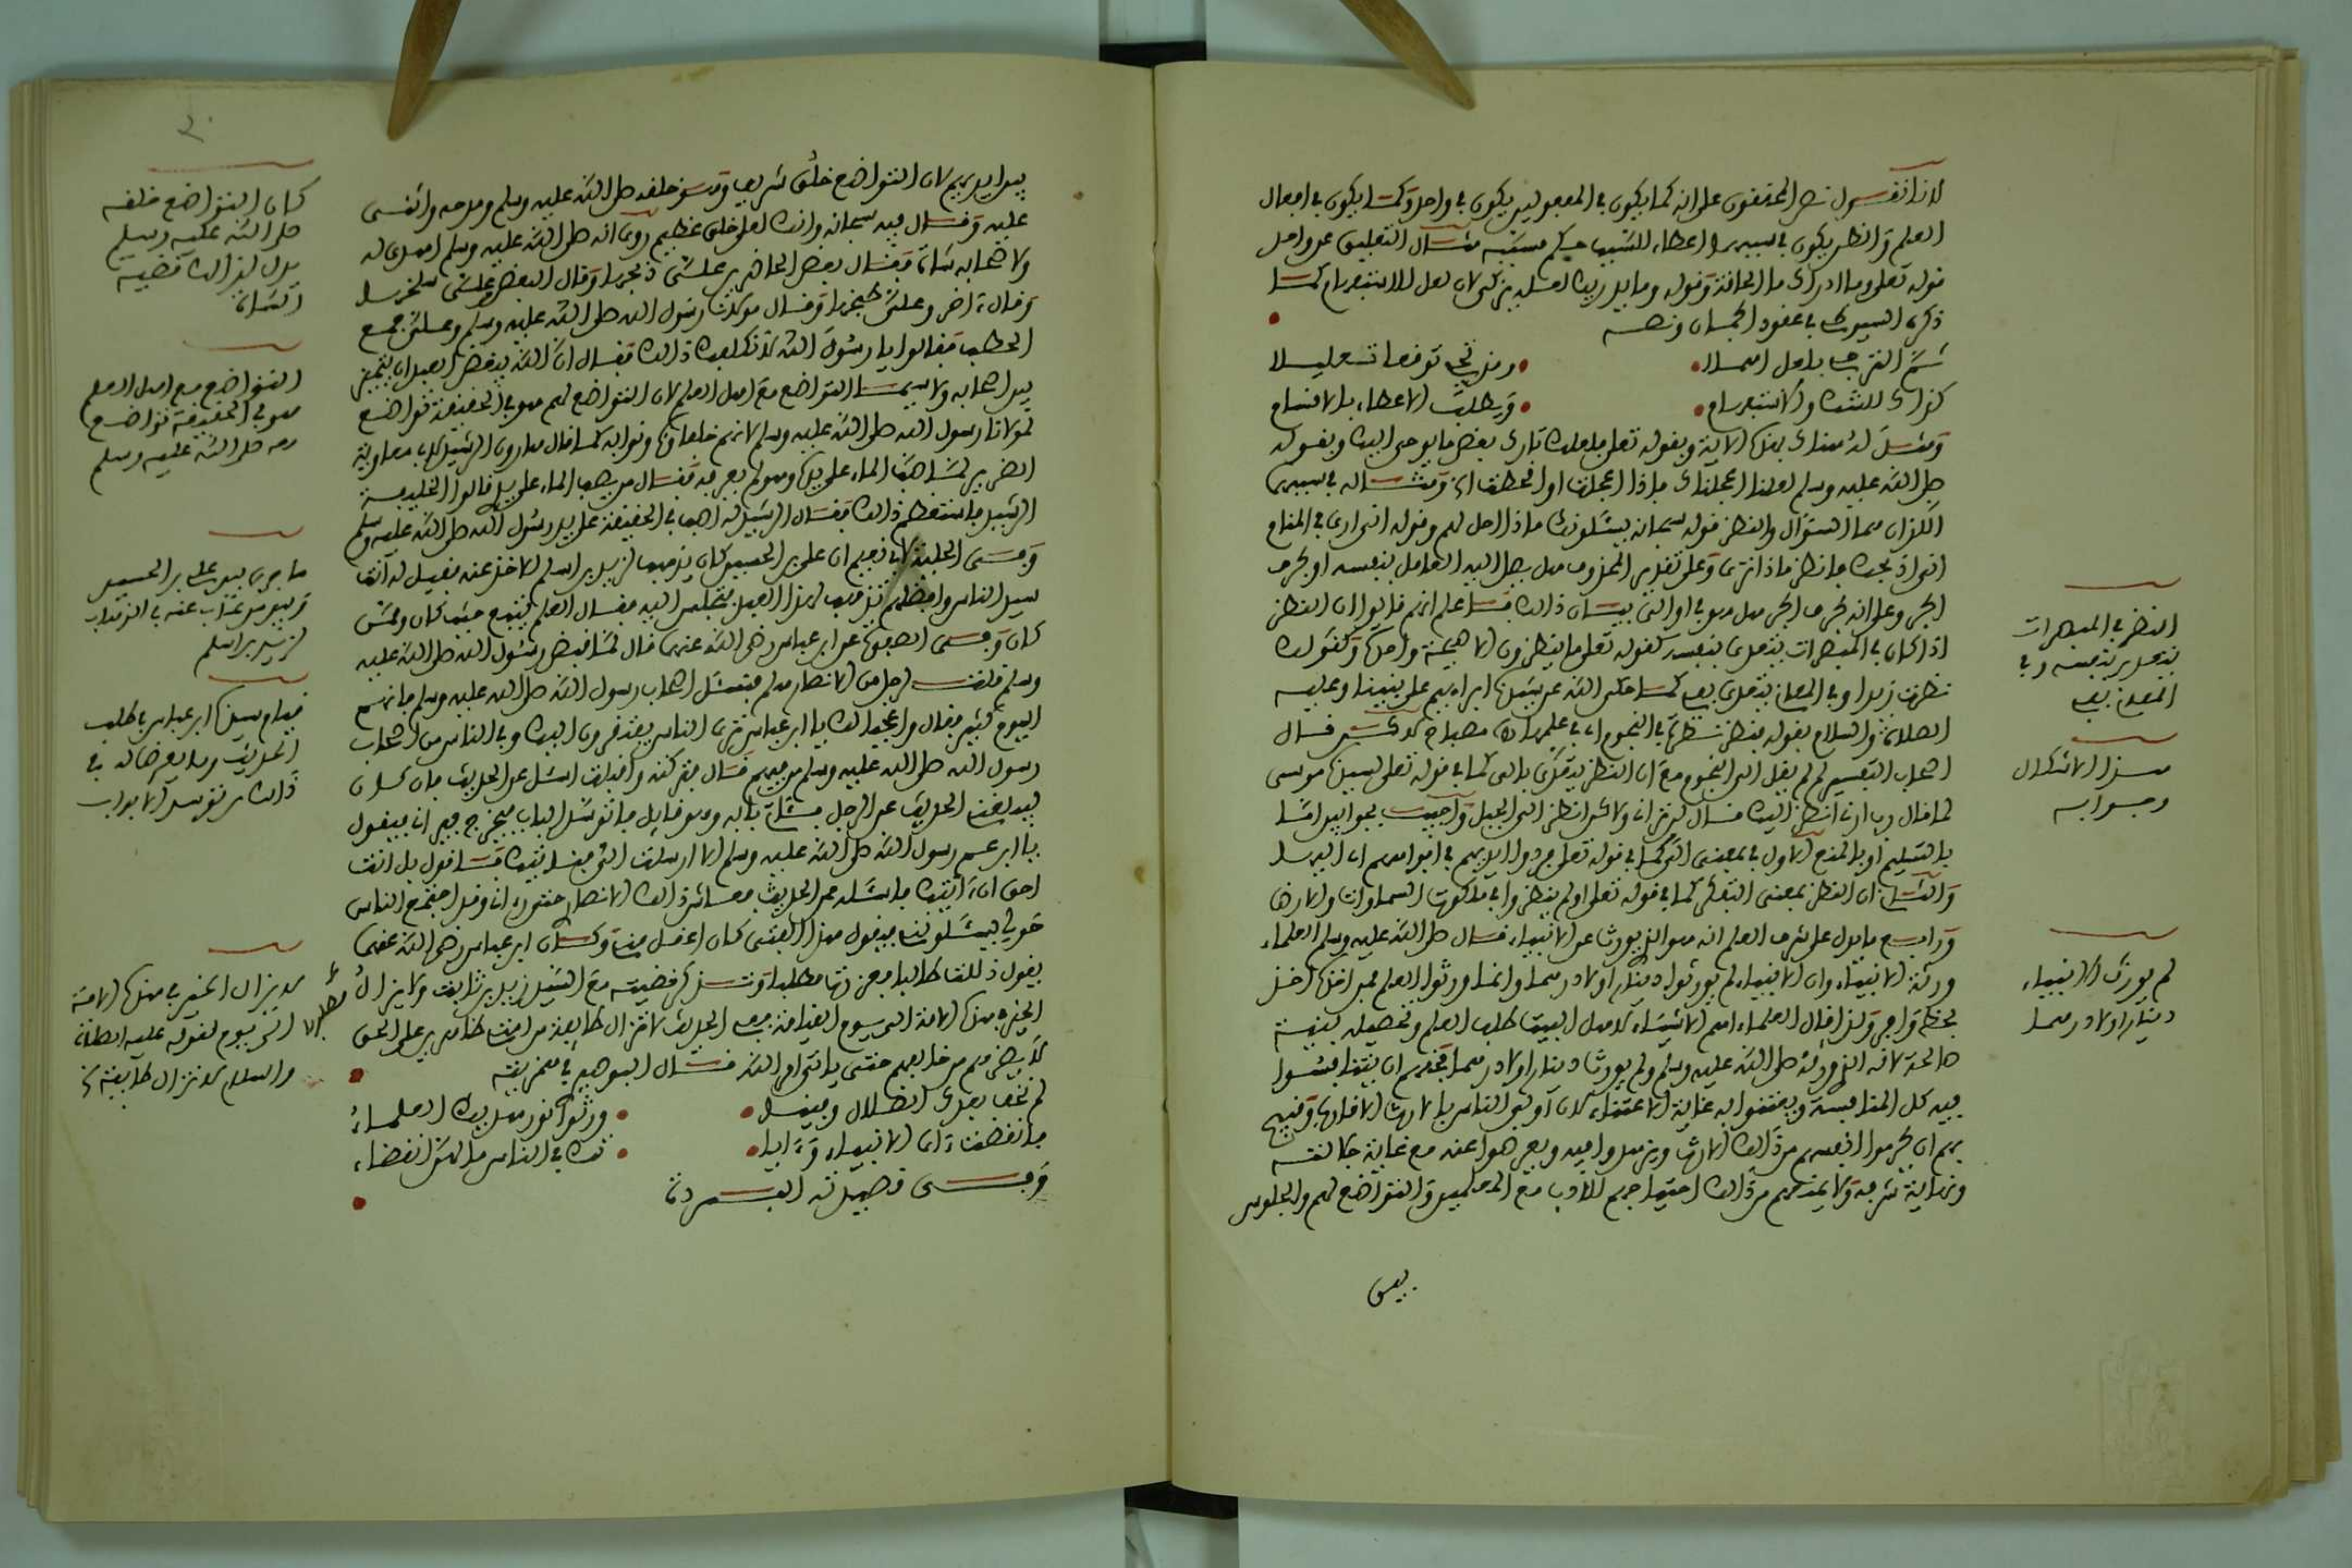 لانا نقول نص المحققون على انه كما يكون في المفعولين يكون في واحد وكما يكون في افعال
العلم والظن يكون في
قوله تعلى وما ادراك ما الحاقة وقوله وما يدريك لعله يزكى لان لعل للاستفهام كما
ذكره السيوطي في عقود الجمان ونصه
كذاك للشك والاستفهام
صلى الله عليه وسلم لعلنا اعجلناك فاذا اعجلت او اقحطت
السؤال والنظر قوله سبحانه يسئلونك ماذا احل لهم وقوله اني ارى في المنام
اني اذبحك فانظر ماذا ترى وعلى تقدير المحذوف هل يصل اليه العامل بنفسه او بحرف
الجر وعلى انه بحرف الجر هل هو في او الى بيان ذلك اعلم انهم قالوا ان النظر
اذا كان في المبصرات يتعدى بنفسه كقوله تعلى ما ينظرون الا صيحة واحدة وكقولك
نظرت زيدا وفي المعاني يتعدى بفي كما حكى الله عن سيدنا ابراهيم على نبينا وعليه
الصلاة والسلام بقوله فنظر نظرة في النجوم اي في علمها
اصحاب التفسير لم لم يقل الى النجوم مع ان النظر يتعدى بالى كما في قوله تعلى لسيدنا موسى
لما قال رب ارني انظر اليك قال لن تراني ولاكن انظر الى الجبل واجيب بجوابين اما
بالتسليم او بالمنع الاول في بمعنى الى كما في قوله تعلى فردوا ايديهم في افواههم اي اليها
والثاني ان النظر بمعنى التفكر كما في قوله تعلى اولم ينظروا في ملكوت السماوات والارض
ورابع ما يدل على شرف العلم انه هو الذي يورث عن الانبياء قال صلى الله عليه وسلم العلماء
ورثة الانبياء وان الانبياء لم يورثوا دينارا ولا درهما وانما ورثوا العلم فمن اخذه اخذ
بحظ وافر ولذا قال العلماء اهم الاشياء لاهل البيت طلب العلم وتحصيله بنية
صالحة لانه الذي ورثه صلى الله عليه وسلم ولم يورث دينارا ولا درهما فحقهم ان يتنافسوا
فيه كل المنافسة ويعتنوا به غاية الاعتناء لان اولى الناس بالارث الاقارب وقبيح
بهم ان يحرموا انفسهم من ذلك الارث ويزهدوا فيه ويعرضوا عنه مع غاية جلالته
ونهاية شرفه ولا يمنعهم من ذلك احتياجهم للادب مع المعلمين والتواضع لهم والجلوس
بين
النظر في المبصرات
يتعدى بنفسه وفي
المعاني بفي
هذا الاشكال
وجوابه
لم يورث الانبياء
دينارا ولا درهما
بين ايديهم لان التواضع خلق شريف وهو خلقه صلى الله عليه وسلم ومدحه واثنى
عليه وقال فيه سبحانه وانك لعلى خلق عظيم روي انه صلى الله عليه وسلم
ولاصحابه شاة فقال بعض الحاضرين علي ذبحها وقال البعض علي سلخها
وقال اخر وعلي طبخها وقال مولانا رسول الله صلى الله عليه وسلم وعلي جمع
الحطب فقالوا يا رسول الله نكفيك ذلك فقال ان الله يبغض العبد ان يتميز
بين اصحابه ولا سيما التواضع مع اهل العلم لان التواضع لهم هو في الحقيقة تواضع
لمولانا رسول الله صلى الله عليه وسلم لانهم خلفاؤه ونوابه كما قال هارون الرشيد لابي معاوية
الضرير لما صب الماء على يده وهو لم يعرفه فقال من يصب الماء على يدي قالوا الخليفة
الرشيد فاستعظم ذلك فقال الرشيد له اصب في الحقيقة على يد رسول الله صلى الله عليه وسلم
وفي الحلية لابي نعيم ان علي بن الحسين كان يذهب لزيد بن اسلم للاخذ عنه فقيل له انت
سيد الناس وافضلهم تذهب لهذا العبد فتجلس اليه فقال العلم يتبع حيث كان وممن
كان وفي عن ابن عباس رضي الله عنهما قال لما قبض رسول الله صلى الله عليه
وسلم قلت لرجل من الانصار هلم فنسئل اصحاب رسول الله صلى الله عليه وسلم فانهم
اليوم كثير فقال واعجبا لك يا ابن عباس ترى الناس يفتقرون اليك وفي الناس من اصحاب
رسول الله صلى الله عليه وسلم من فيهم قال فتركته واقبلت اسئل عن الحديث فان كان
ليبلغني الحديث عن الرجل فئاتي بابه وهو قايل فاتوسد الباب فيخرج فيراني فيقول
يا ابن عم رسول الله صلى الله عليه وسلم الا ارسلت الي فئاتيك فاقول بل انت
احق ان اتيك فاسئله عن الحديث فعاش ذلك الانصاري حتى رءاني وقد اجتمع الناس
حولي يسئلونني فيقول هذا الفتى كان اعقل مني وكان ابن عباس رضي الله عنهما
يقول ذللت طالبا فعززت مطلبا وتذكر قضيته مع السيد زيد بن ثابت ولا يزال
الخير في هذه الامة الى يوم القيامة ففي الحديث لا تزال طايفة من امتي ظاهرين على الحق
لا يضرهم من خالفهم حتى ياتي امر الله قال البوصيري في همزيته
لم نخف بعدك الضلال وفينا
وارثوا نور هديك العلماء
فانقضت اي الانبياء وءايا
تك في الناس ما لهن انقضاء
وفي قصيدته البردة
كان التواضع خلقه
صلى الله عليه وسلم
يدل لذلك قضية
الشاة
التواضع مع اهل العلم
هو في الحقيقة تواضع
معه صلى الله عليه وسلم
ما جرى بين علي بن الحسين
وبين من عتاب عنه في الذهاب
لزيد بن اسلم
قيام سيدنا ابن عباس في طلب
الحديث وما يعرض له في
ذلك من توسد الابواب
لا يزال الخير في هذه الامة
الى يوم لقوله عليه الصلاة
والسلام لا تزال طايفة